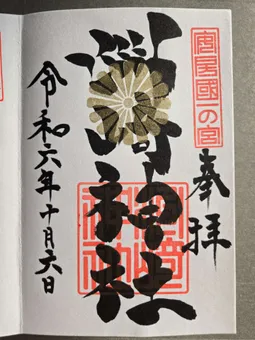 安房國一の宮
奉拝
洲崎神社
令和六年十月六日